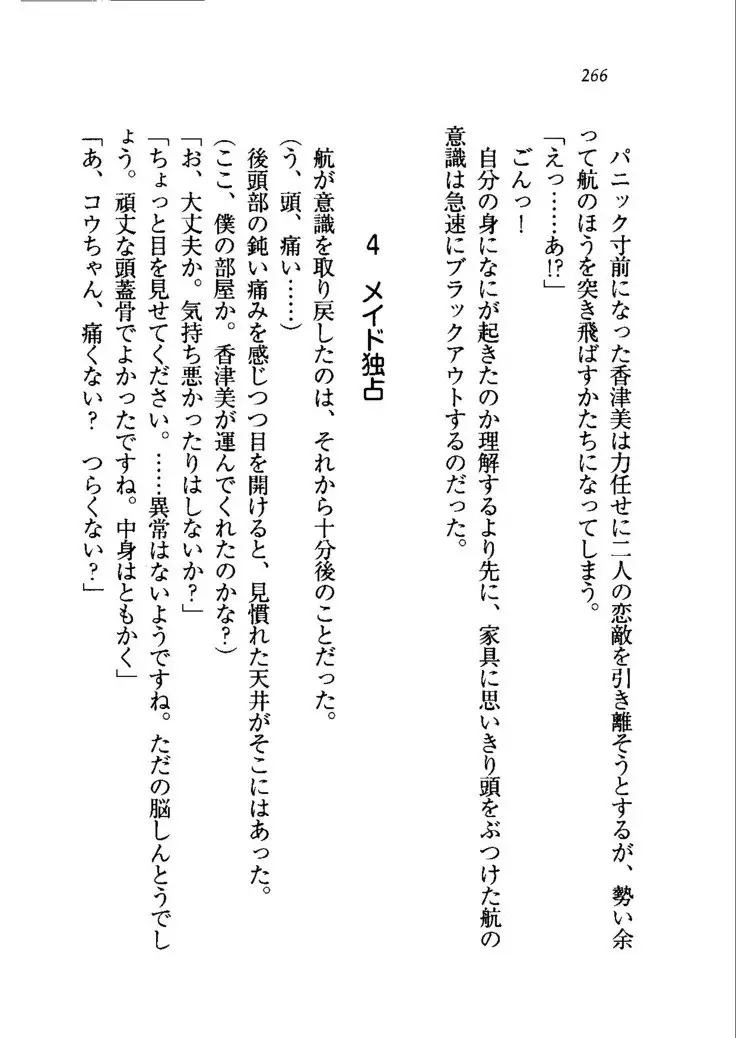 266
パニック寸前になった香津美は力任せに二人の恋敵を引き離そうとするが、勢い余
って航のほうを突き飛ばすかたちになってしまう。
「えっ……あ!?」
ごんっ！
自分の身になにが起きたのか理解するより先に、家具に思いきり頭をぶつけた航の
意識は急速にブラックアウトするのだった。
4　メイド独占
航が意識を取り戻したのは、それから十分後のことだった。
(う、頭、痛い……)
後頭部の鈍い痛みを感じつつ目を開けると、見慣れた天井がそこにはあった。
(ここ、僕の部屋か。香津美が運んでくれたのかな？)
「お、大丈夫か。気持ち悪かったりはしないか？」
「ちょっと目を見せてください。……異常はないようですね。ただの脳しんとうでし
ょう。頑丈な頭蓋骨でよかったですね。中身はともかく」
「あ、コウちゃん、痛くない？　つらくない？」